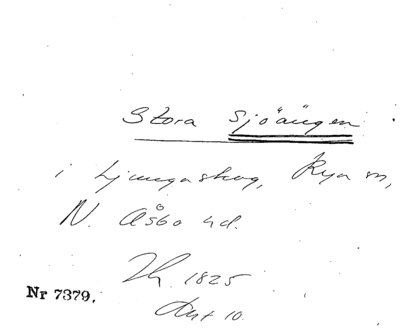 Stora Sjöängen
i Ljungaskog, Rya sn,
N. Åsbo hd.
1825
Akt 10.
Nr 7379.